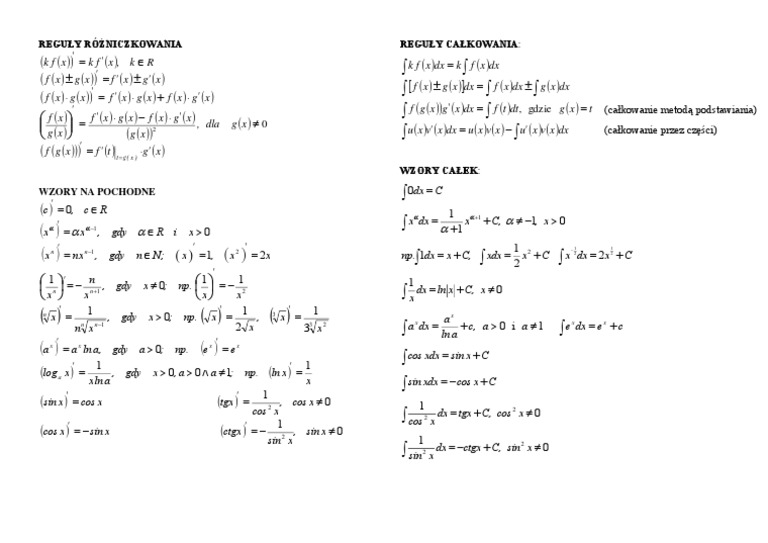 REGUŁY RÓŻNICZKOWANIA
(k f(x))' = k f'(x), k ∈ R
(f(x) ± g(x))' = f'(x) ± g'(x)
(f(x)·g(x))' = f'(x)·g(x) + f(x)·g'(x)
(f(x)/g(x))' = (f'(x)·g(x) − f(x)·g'(x))/(g(x))², dla g(x) ≠ 0
(f(g(x)))' = f'(t)|t=g(x) · g'(x)
WZORY NA POCHODNE
(c)' = 0, c ∈ R
(x^α)' = αx^(α−1), gdy α ∈ R i x > 0
(x^n)' = nx^(n−1), gdy n ∈ N; (x)' = 1, (x²)' = 2x
(1/x^n)' = −n/x^(n+1), gdy x ≠ 0; np. (1/x)' = −1/x²
(ⁿ√x)' = 1/(n ⁿ√x^(n−1)), gdy x > 0; np. (√x)' = 1/(2√x), (³√x)' = 1/(3 ³√x²)
(a^x)' = a^x lna, gdy a > 0; np. (e^x)' = e^x
(log_a x)' = 1/(xlna), gdy x > 0, a > 0 ∧ a ≠ 1; np. (lnx)' = 1/x
(sinx)' = cosx (tgx)' = 1/cos² x, cosx ≠ 0
(cosx)' = −sinx (ctgx)' = −1/sin² x, sinx ≠ 0
REGUŁY CAŁKOWANIA:
∫k f(x)dx = k∫f(x)dx
∫[f(x) ± g(x)]dx = ∫f(x)dx ± ∫g(x)dx
∫f(g(x))g'(x)dx = ∫f(t)dt, gdzie g(x) = t (całkowanie metodą podstawiania)
∫u(x)v'(x)dx = u(x)v(x) − ∫u'(x)v(x)dx (całkowanie przez części)
WZORY CAŁEK:
∫0dx = C
∫x^α dx = 1/(α+1) x^(α+1) + C, α ≠ −1, x > 0
np. ∫1dx = x + C, ∫xdx = 1/2 x² + C ∫x^(−1/2)dx = 2x^(1/2) + C
∫1/x dx = ln|x| + C, x ≠ 0
∫a^x dx = a^x/lna + c, a > 0 i a ≠ 1 ∫e^x dx = e^x + c
∫cos xdx = sinx + C
∫sinxdx = −cosx + C
∫1/cos² x dx = tgx + C, cos² x ≠ 0
∫1/sin² x dx = −ctgx + C, sin² x ≠ 0